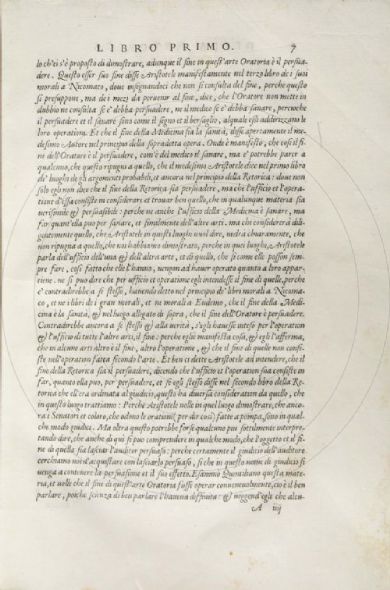 LIBRO PRIMO. 7
lo ch'ei s'è proposto di dimostrare, adunque il fine in quest'arte Oratoria è il persua-
dere. Questo esser suo fine disse Aristotele manifestamente nel terzo libro de i suoi
morali a Nicomaco, dove insegnandoci che non si consulta del fine, perche questo
si presuppone, ma de i mezi da pervenir al fine, dice, che l'Oratore non mette in
dubbio ne consulta se è debba persuadere, ne il medico se è debba sanare, percioche
il persuadere et il sanare sono come il segno et il bersaglio, alquale essi addirizzano le
loro operationi. Et che il fine della Medicina sia la sanità, disse apertamente il me-
desimo Autore nel principio della sopradetta opera. Onde è manifesto, che così il fi-
ne dell'Oratore è il persuadere, com'è del medico il sanare, ma e' potrebbe parer a
qualcuno, che questo ripugni a quello, che il medesimo Aristotele dice nel primo libro
de' luoghi de gli argomenti probabili, et ancora nel principio della Retorica: dove non
solo egli non dice che il fine della Retorica sia persuadere, ma che l'ufficio et l'opera-
tione d'essa consiste in considerare et trovar ben quello, che in qualunque materia sia
verisimile & persuasibile: perche ne anche l'ufficio della Medicina è sanare, ma
far quant'ella puo per sanare, et similmente dell'altre arti. ma chi considererà dili-
gentemente quello, che Aristotele in questi luoghi vuol dire, vedrà chiaramente, che
non ripugna a quello, che noi habbiamo dimostrato, perche in quei luoghi Aristotele
parla dell'ufficio dell'una & dell'altra arte, et di quello, che sì come elle posson sem-
pre fare, così fatto che elle l'hanno, vengon ad haver operato quanto a loro appar-
tiene. ne si puo dire che per ufficio et operatione egli intendesse il fine di quelle, perche
e' contradirebbe a se stesso, havendo detto nel principio de' libri morali a Nicoma-
co, et ne i libri de i gran morali, et ne morali a Eudemo, che il fine della Medi-
cina è la sanità, & nel luogo allegato di sopra, che il fine dell'Oratore è persuadere.
Contradirebbe ancora a se stesso & alla verità, s'egli havesse inteso per l'operation
& l'ufficio di tutte l'altre arti, il fine: perche egli è manifesta cosa, & egli l'afferma,
che in alcune arti altro è il fine, altro l'operatione, & che il fine di quelle non consi-
ste nell'operation fatta secondo l'arte. Et ben ci dette Aristotele ad intendere, che il
fine della Retorica sia il persuadere, dicendo che l'ufficio et l'operation sua consiste in
far, quanto ella puo, per persuadere, et se egli stesso disse nel secondo libro della Re-
torica che ell'era ordinata al giudicio, questo ha diversa consideration da quello, che
in questo luogo trattiamo: Perche Aristotele volle in quel luogo dimostrare, che anco-
ra i Senatori et coloro, che odono le orationi (per dir così) fatte a pompa, sono in qual-
che modo giudici. Ma oltra questo potrebbe forse qualcuno piu sottilmente interpre-
tando dire, che anche di qui si puo comprendere in qualche modo, che l'oggetto et il fi-
ne di quella sia lasciar l'auditor persuaso: perche certamente il giudicio dell'auditore
cerchiamo noi d'acquistare con lasciarlo persuaso, sì che in questo nome di giudicio si
venga a contenere la persuasione et il suo effetto. Esaminò Quintiliano questa mate-
ria, et volle che il fine di quest'arte Oratoria fosse operar convenevolmente, cio è il ben
parlare, poiche scienza di ben parlare l'haveva diffinita: & veggend'egli che alcu-
A iiij